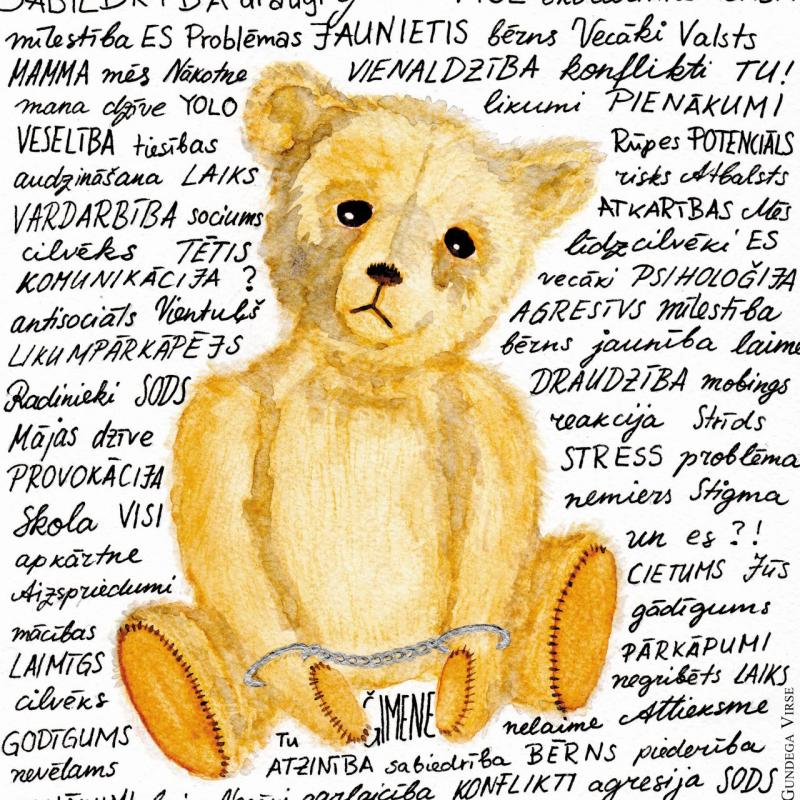 SABIEDRĪBA draugi
mīlestība ES Problēmas JAUNIETIS bērns Vecāki Valsts
MAMMA mēs Nākotne VIENALDZĪBA konflikti TU!
mana dzīve YOLO likumi PIENĀKUMI
VESELĪBA tiesības Rūpes POTENCIĀLS
audzināšana LAIKS risks Atbalsts
VARDARBĪBA sociums ATKARĪBAS Mēs
cilvēks TĒTIS līdzcilvēki ES
KOMUNIKĀCIJA ? vecāki PSIHOLOĢIJA
antisociāls Vientuļš AGRESĪVS mīlestība
LIKUMPĀRKĀPĒJS bērns jaunība laime
Radinieki SODS DRAUDZĪBA mobings
Mājas dzīve reakcija Strīds
PROVOKĀCIJA STRESS problēma
Skola VISI nemiers Stigma
apkārtne un es ?!
Aizspriedumi CIETUMS Jūs
mācības gādīgums
LAIMĪGS PĀRKĀPUMI
cilvēks negribēts LAIKS
ĢIMENE nelaime Attieksme
GODĪGUMS Tu
nevēlams ATZINĪBA sabiedrība BĒRNS piederība
KONFLIKTI agresija SODS
GUNDEGA VIRSE